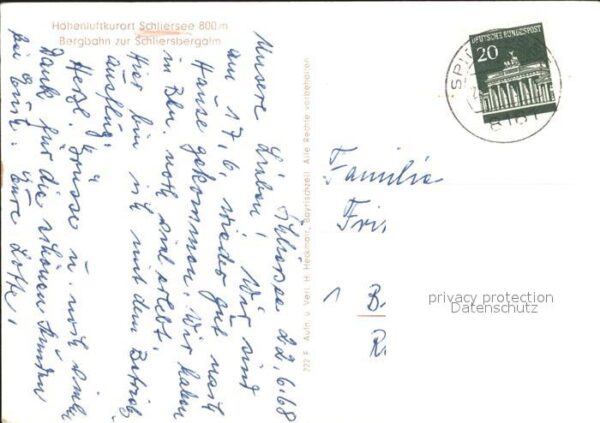 Höhenluftkurort Schliersee 800 m
Bergbahn zur Schliersbergalm
Schliersee 22.6.68
Unsere Lieben! Wir sind
am 17.6. wieder gut nach
Hause gekommen. Wir haben
in Bln. noch viel erlebt.
Hier bin ich mit dem Betrieb
ausflug.
Herzl. Grüsse u. noch vielen
Dank für die schönen Stunden
bei Euch. Eure Lotte.
222 F Aufn. u. Verl. H. Heuschneider, Bayrischzell. Alle Rechte vorbehalten
DEUTSCHE BUNDESPOST
20
SPI
8161
Familie
Fri
1 B.
R.
privacy protection
Datenschutz